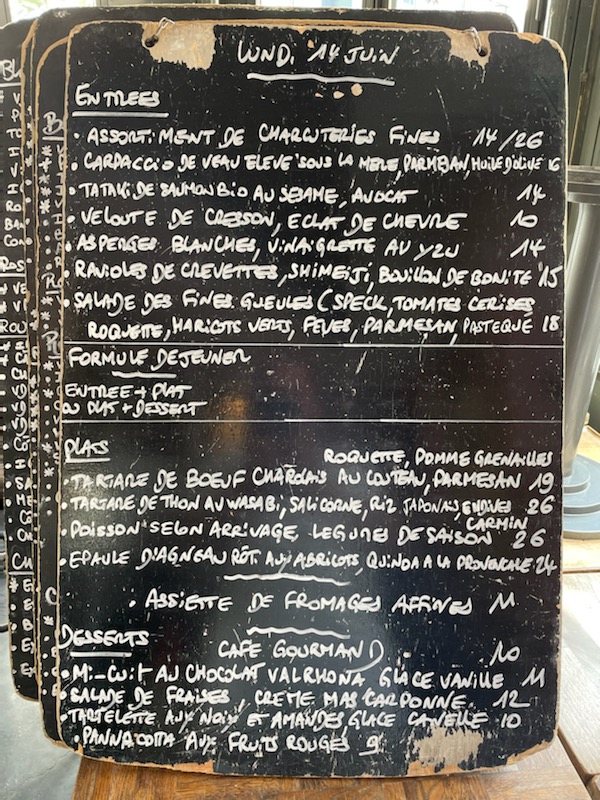 LUNDI 14 JUIN
ENTREES
• ASSORTIMENT DE CHARCUTERIES FINES 14/26
• CARPACCIO DE VEAU ELEVE SOUS LA MERE, PARMESAN, HUILE D'OLIVE 16
• TATAKI DE SAUMON BIO AU SESAME, AVOCAT 14
• VELOUTE DE CRESSON, ECLAT DE CHEVRE 10
• ASPERGES BLANCHES, VINAIGRETTE AU YZU 14
• RAVIOLES DE CREVETTES, SHIMEIJI, BOUILLON DE BONITE 15
• SALADE DES FINES GUEULES (SPECK, TOMATES CERISES
ROQUETTE, HARICOTS VERTS, FEVES, PARMESAN, PASTEQUE 18
FORMULE DEJEUNER
ENTREE + PLAT
OU PLAT + DESSERT
PLATS
ROQUETTE, POMME GRENAILLES
• TARTARE DE BOEUF CHAROLAIS AU COUTEAU, PARMESAN 19
• TARTARE DE THON AU WASABI, SALICORNE, RIZ JAPONAIS, ENDIVES 26
CARMIN
• POISSON SELON ARRIVAGE, LEGUMES DE SAISON 26
• EPAULE D'AGNEAU RÔTI AUX ABRICOTS, QUINOA A LA PROVENCALE 24
• ASSIETTE DE FROMAGES AFFINES 11
DESSERTS
CAFE GOURMAND 10
• MI-CUIT AU CHOCOLAT VALRHONA GLACE VANILLE 11
• SALADE DE FRAISES, CREME MASCARPONNE 12
• TARTELETTE AUX NOIX ET AMANDES GLACE CANELLE 10
• PANNACOTTA AUX FRUITS ROUGES 9